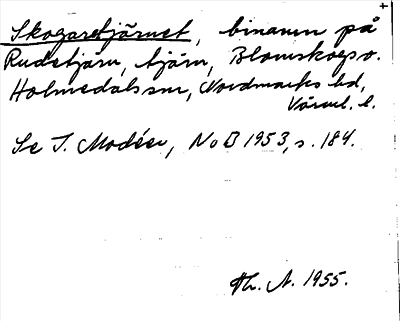 Skogaretjärnet, binamn på
Rudetjärn, tjärn, Blomskogs o.
Holmedals snr, Nordmarks hd,
Värml. l.
Se I. Modéer, NoB 1953, s. 184.
Th. A. 1955.